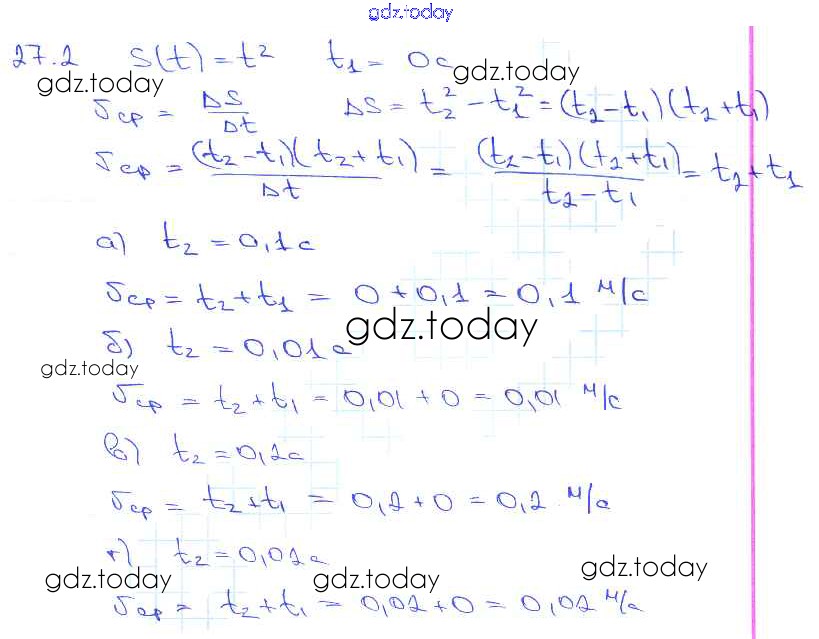 gdz.today
27.2 S(t) = t² t₁ = 0c
gdz.today gdz.today
υср = ΔS/Δt ΔS = t₂² - t₁² = (t₂ - t₁)(t₂ + t₁)
υср = (t₂ - t₁)(t₂ + t₁)/Δt = (t₂ - t₁)(t₂ + t₁)/(t₂ - t₁) = t₂ + t₁
а) t₂ = 0,1с
υср = t₂ + t₁ = 0 + 0,1 = 0,1 м/с
gdz.today
б) t₂ = 0,01с
gdz.today
υср = t₂ + t₁ = 0,01 + 0 = 0,01 м/с
в) t₂ = 0,2с
υср = t₂ + t₁ = 0,2 + 0 = 0,2 м/с
г) t₂ = 0,02с
gdz.today gdz.today gdz.today
υср = t₂ + t₁ = 0,02 + 0 = 0,02 м/с